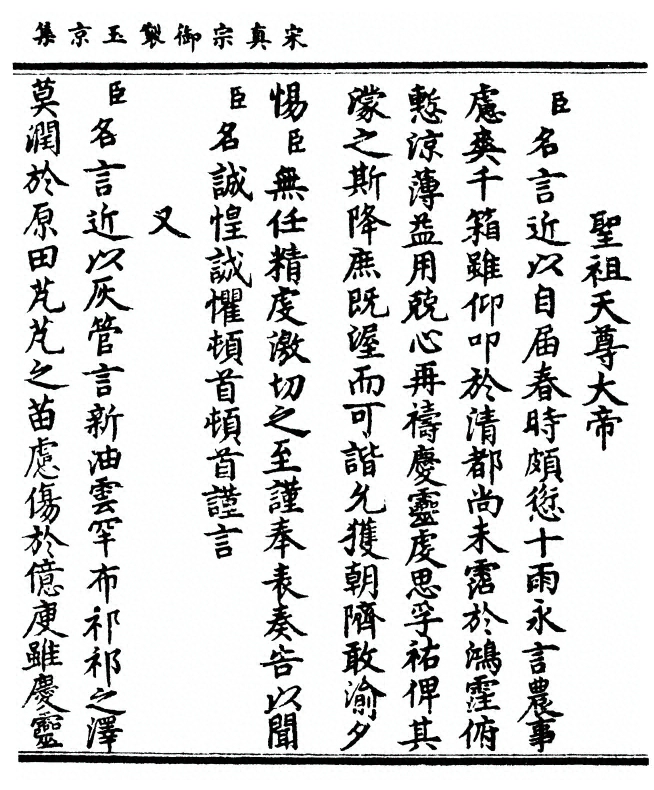 宋真宗御製玉京集
聖祖天尊大帝
臣名言近以自届春時頗愆十雨永言農事
慮爽千箱雖仰叩於清都尚未霑於鴻霔俯
慙涼薄益用兢心再禱慶靈虔思孚祐俾其
濛之斯降庶既渥而可諧允獲朝隮敢渝夕
惕臣無任精虔激切之至謹奉表奏告以聞
臣名誠惶誠懼頓首頓首謹言
又
臣名言近以灰管言新油雲罕布祁祁之澤
莫潤於原田芃芃之苗慮傷於億庾雖慶靈